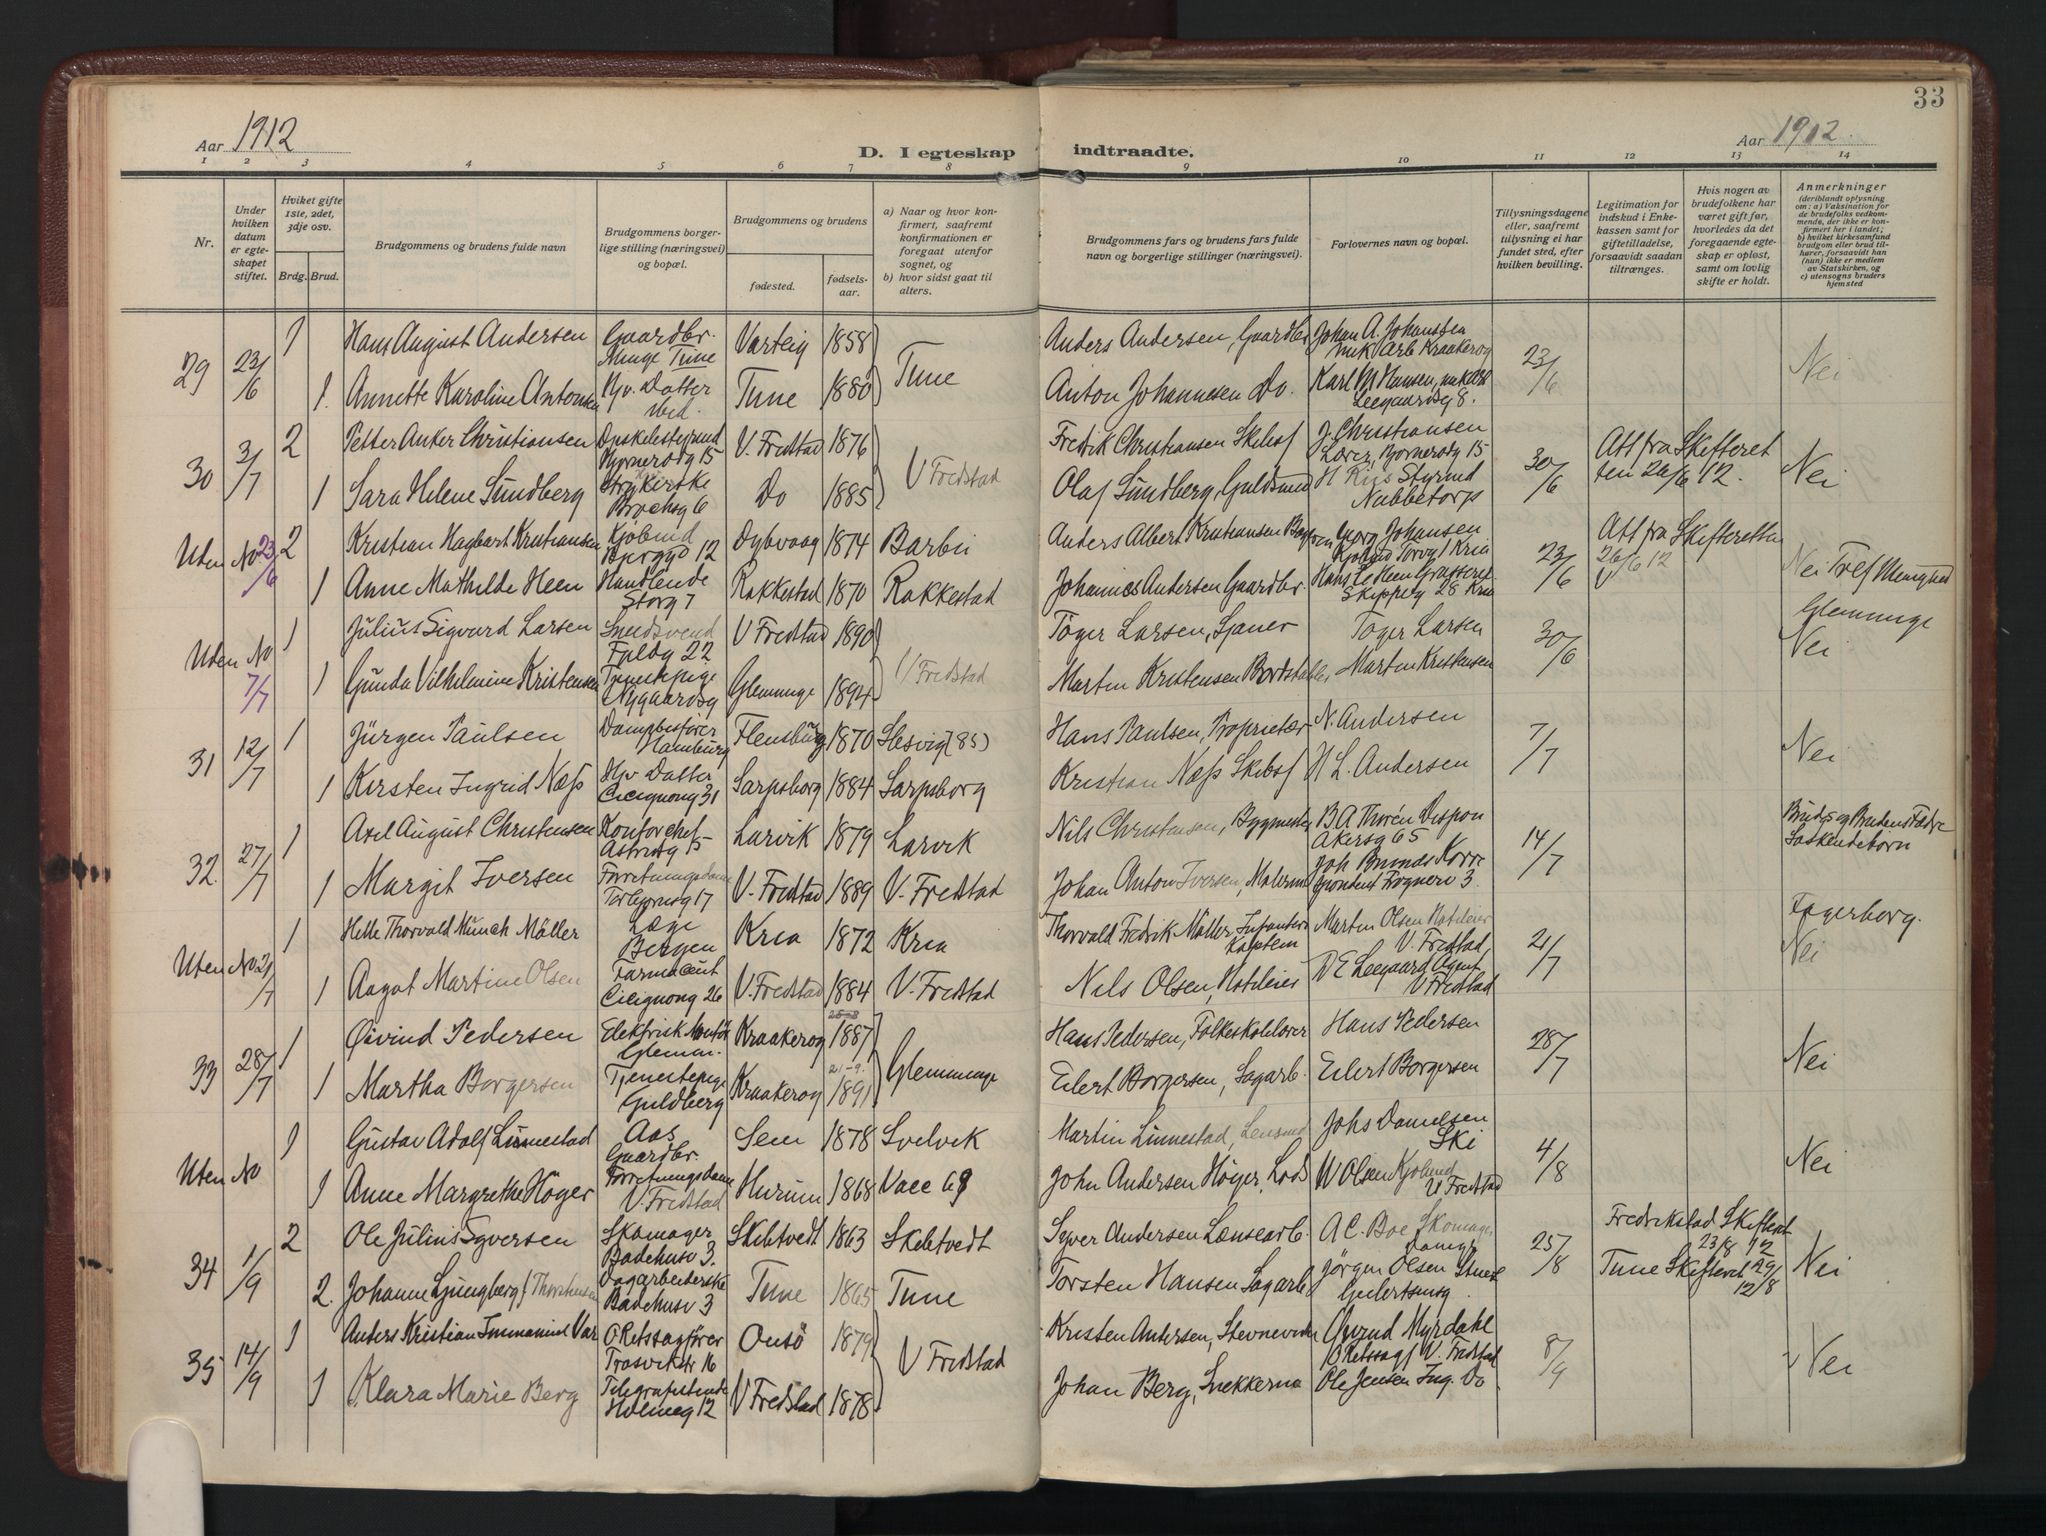 33
Aar 1912
D. I egteskap indtraadte.
Aar 1912
1 2 3 4 5 6 7 8 9 10 11 12 13 14
Nr.
Under hvilken datum er egteskapet stiftet.
Hviket gifte 1ste, 2det, 3dje osv.
Brdg. Brud.
Brudgommens og brudens fulde navn
Brudgommens borgerlige stilling (næringsvei) og bopæl.
Brudgommens og brudens
fødested.
fødselsaar.
a) Naar og hvor konfirmert, saafremt konfirmationen er foregaat utenfor sognet, og
b) hvor sidst gaat til alters.
Brudgommens fars og brudens fars fulde navn og borgerlige stillinger (næringsvei).
Forlovernes navn og bopæl.
Tillysningsdagene eller, saafremt tillysning ei har fundet sted, efter hvilken bevilling.
Legitimation for indskud i Enkekassen samt for giftetilladelse, forsaavidt saadan tiltrænges.
Hvis nogen av brudefolkene har været gift før, hvorledes da det foregaaende egteskap er opløst, samt om lovlig skifte er holdt.
Anmerkninger
(deriblandt oplysning om: a) Vaksination for de brudefolks vedkommende, der ikke er konfirmert her i landet; b) hvilket kirkesamfund brudgom eller brud tilhører, forsaavidt han (hun) ikke er medlem av Statskirken, og c) utensogns bruders hjemsted
29 23/6 1 Hans August Andersen Gaardbr. Tune Varteig 1858 Tune Anders Andersen, Gaardbr Johan A. Johanssen Kraakerøy 23/6 Nei
1. Annette Karoline Antonsen Hjv. Datter ibid. Tune 1880 Anton Johannesen Do. Karl M Hansen, Leegaardsg 8.
30 3/7 2 Petter Anker Christiansen Bjørnerødg 15 V. Fredstad 1876 V Fredstad Fredrik Christiansen Skibsf J. Christiansen Lærer, Bjørnerødg 15 30/6 Att fra Skifteret ten 26/6 12. Nei
1 Sara Helene Sundberg Strykerske Brochsg 6 Do 1885 Olaf Sundberg, Guldsmed H Riis Styrmd Nabbetorp
Uden No 23/6 2 Kristian Hagbart Kristiansen Kjøbmd 12 Dybvaag 1874 Barbu Anders Albert Kristiansen Georg Johansen Kjøbmd Torvg 1 Kria 23/6 Att fra Skifteretten 26/6 12 Nei Tref Menighed
1 Anne Mathilde Heen Handlende Storg 7 Rakkestad 1870 Rakkestad Johannes Andersen Gaardbr. Hans L Heen Skipperg 28 Kria
Uten No 7/7 1 Julius Sigvard Larsen Smedsvend Fuldg 22 V Fredstad 1890 V Fredstad Tøger Larsen, Sjauer Tøger Larsen 30/6 Glemminge Nei
1 Gunda Vilhelmine Kristensen Tjenestepige Nygaardsg Glemminge 1894 Martin Kristensen Martin Kristensen
31 12/7 1 Jürgen Paulsen Dampbestyrer Hamburg Flensburg 1870 Slesvig (85) Hans Paulsen, Proprietær N. Andersen 7/7 Nei
1 Kirsten Ingrid Næss Hjv Datter Cicignong 31 Sarpsborg 1884 Sarpsborg Kristian Næss Skibsf H L. Andersen
32 27/7 1 Axel August Christensen Kontorchef 15 Larvik 1879 Larvik Nils Christensen, Bygmester B A Thorén Dispon Akersg 65 14/7 Brudgs og Brudens Fædre Søskendebørn
1 Margit Iversen Forretningsdame Torbjørnsg 17 V. Fredstad 1889 V. Fredstad Johan Anton Iversen, Malerm Joh Korre spondent Frognerv 3
Uten No 21/7 1 Helle Thorvald Munch Møller Læge Bergen Kria 1872 Kria Thorvald Fredrik Møller, Infanteri Kaptein Martin Olsen Hotleier V. Fredstad, 21/7 Fagerborg. Nei
1 Aagot Martine Olsen Farmaceut Cicignong 26 V. Fredstad 1884 V. Fredstad Nils Olsen, Hotleier D E Leegaard Agent V Fredstad
33 28/7 1 Øivind Pedersen Elektrisk Montør Glemm. Kraakerøy 1887 Glemminge Hans Pedersen, Folkeskolelærer Hans Pedersen 28/7 Nei
1 Martha Borgersen Tjenestepige Guldberg Kraakerøy 21-9 1891 Eilert Borgersen, Sagarb. Eilert Borgersen
Uten No 1 Gustav Adolf Linnestad Aas Gaardbr. Sem 1878 Svelvik Martin Linnestad, Lensmd Johs Danielsen Ski 4/8 Nei
1 Anne Margrethe Höger Forretningsdame V. Fredstad Hurum 1868 John Andersen Höger, Lods W Olsen Kjøbmd V Fredstad
34 1/9 2 Ole Julius Syversen Skomager Badehusv 3. Skibtvedt 1863 Skibtvedt Syver Andersen Lænsearb. A C. Boe Skomager 25/8 Fredrikstad Skifteret 23/8 12 Nei
2. Johanne Ljungberg f Thorstensen Dagarbeiderske Badehusv 3 Tune 1865 Tune Torsten Hansen Sagarb Jørgen Olsen Tune Skifteret 29/8 12
35 14/9 1 Anders Kristian Immanuel Var O Retssagfører Trosvikstr 16 Onsö 1879 V Fredstad Kristen Andersen, Stevnevidne Øyvind Myrdahl O Retssagf V. Fredstad 8/9 Nei
1 Klara Marie Berg Telegrafistinde Holmeg 12 V Fredstad 1878 Johan Berg, Snekkerm Ole Jensen Ing. Do